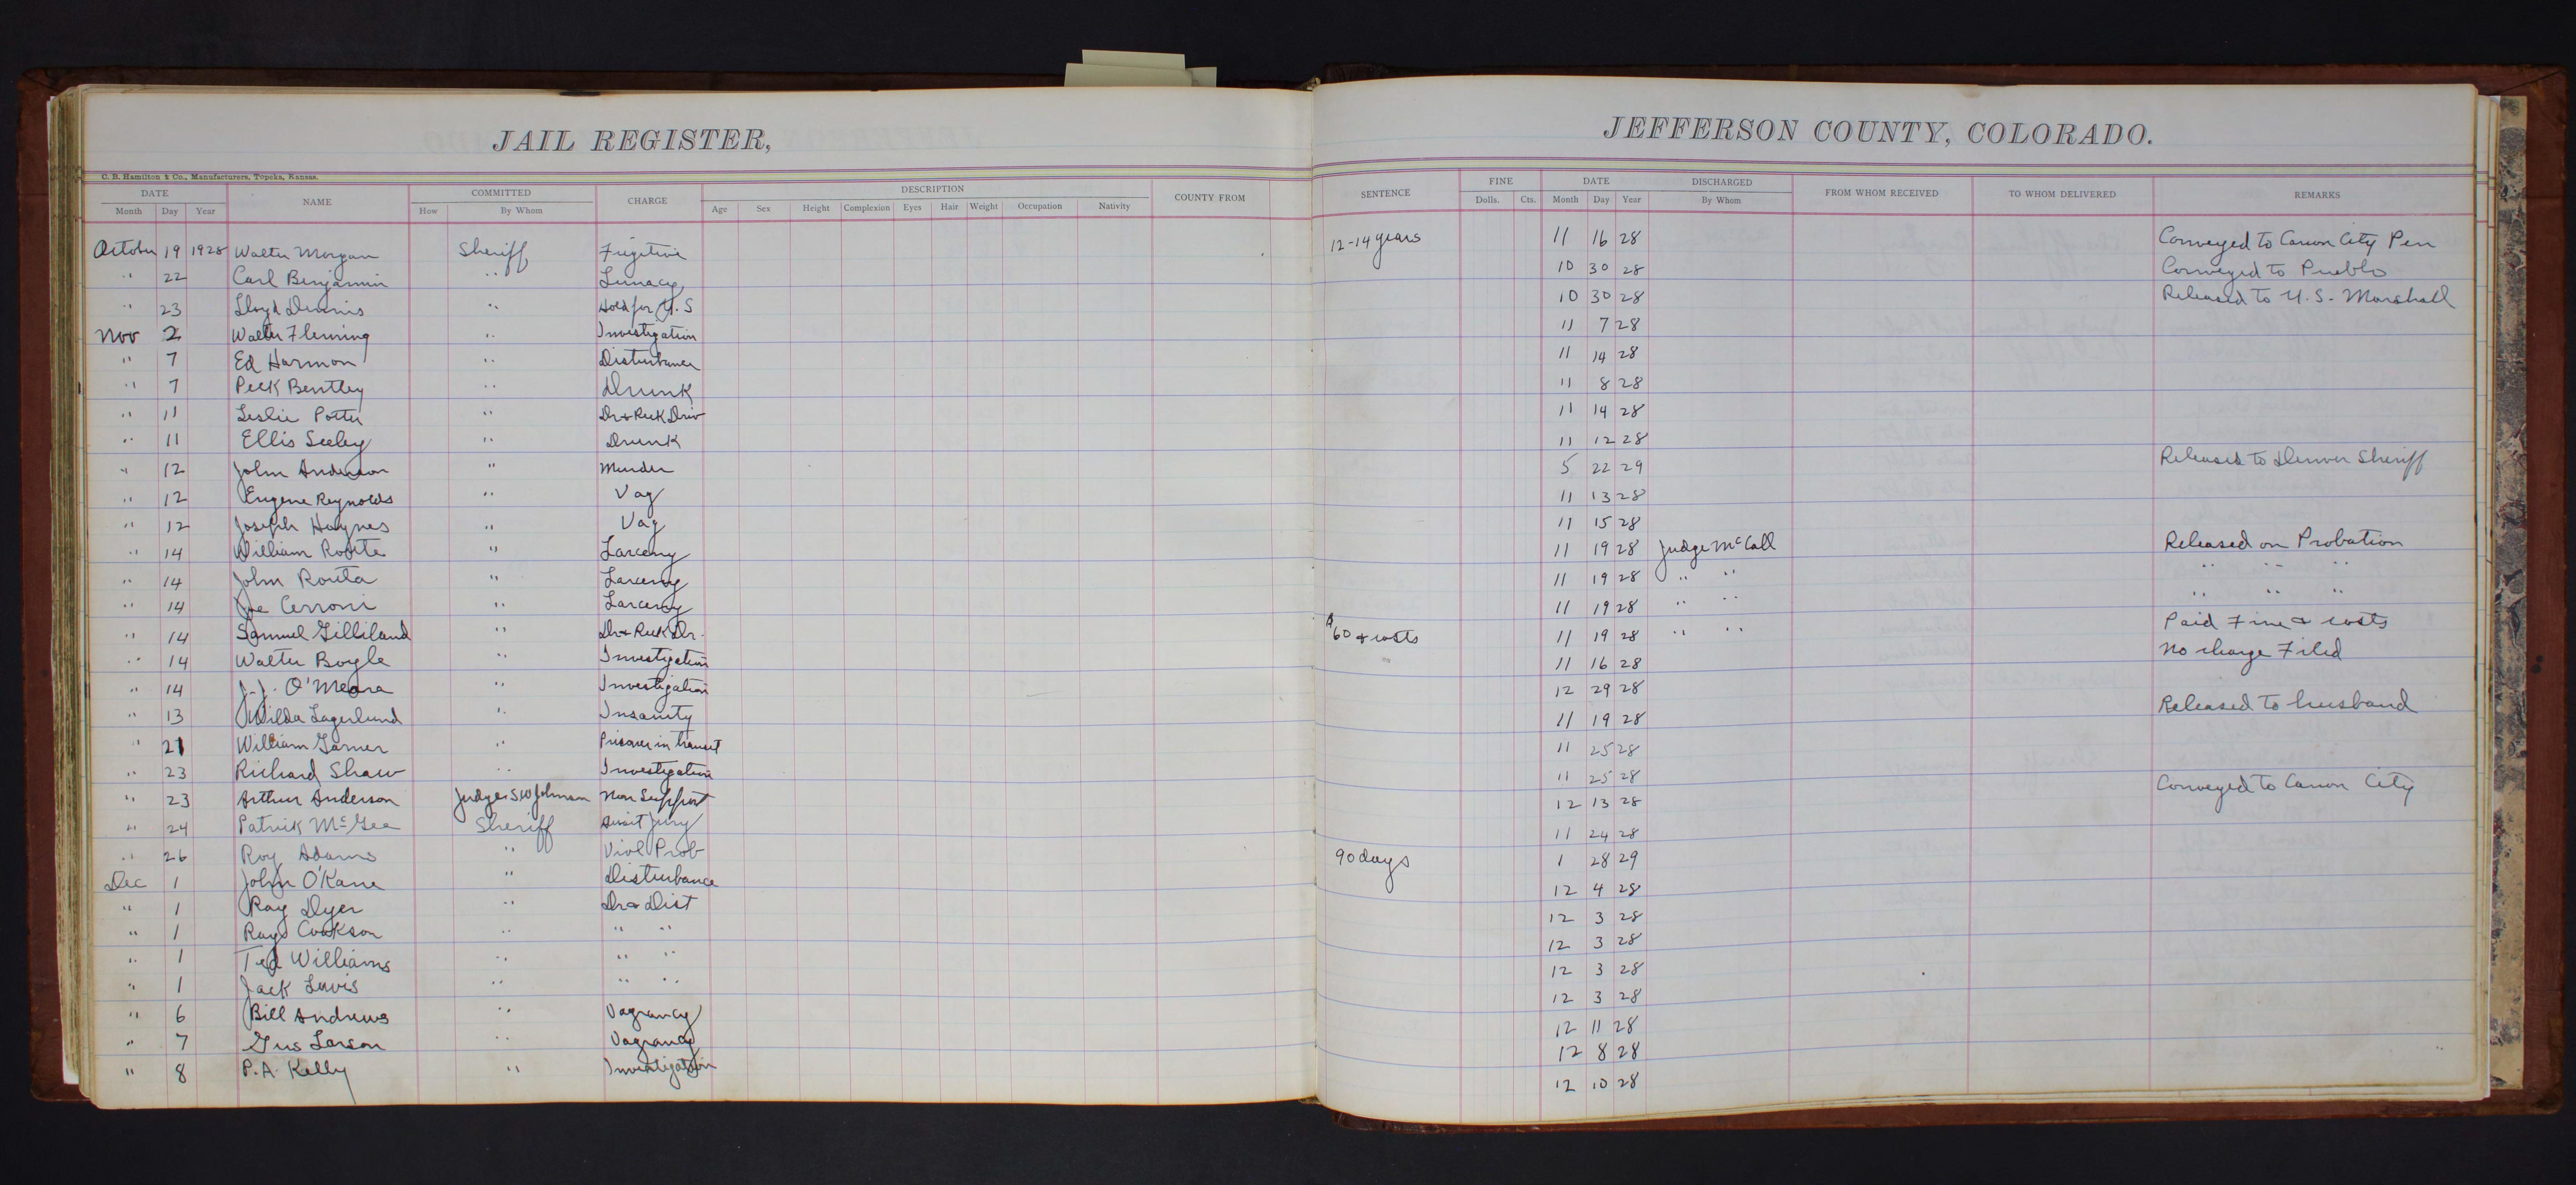 JAIL REGISTER,
JEFFERSON COUNTY, COLORADO.
C. B. Hamilton & Co., Manufacturers, Topeka, Kansas.
DATE NAME COMMITTED CHARGE DESCRIPTION COUNTY FROM SENTENCE FINE DATE DISCHARGED FROM WHOM RECEIVED TO WHOM DELIVERED REMARKS
Month Day Year How By Whom Age Sex Height Complexion Eyes Hair Weight Occupation Nativity Dolls. Cts. Month Day Year By Whom
October 19 1928 Walter Morgan Sheriff Fugitive 12-14 years 11 16 28 Conveyed to Canon City Pen
" 22 Carl Benjamin " Lunacy 10 30 28 Conveyed to Pueblo
" 23 Lloyd Dennis " Hold for U.S 10 30 28 Released to U.S. Marshall
Nov 2 Walter Fleming " Investigation 11 7 28
" 7 Ed Harmon " Disturbance 11 14 28
" 7 Peek Bentley " Drunk 11 8 28
" 11 Leslie Potter " Dr & Reck Driv 11 14 28
" 11 Ellis Seeley " Drunk 11 12 28
" 12 John Anderson " Murder 5 22 29 Released to Denver Sheriff
" 12 Eugene Reynolds " Vag 11 13 28
" 12 Joseph Haynes " Vag 11 15 28
" 14 William " Larceny 11 19 28 Judge McCall Released on Probation
" 14 John Routa " Larceny 11 19 28 " " " " "
" 14 Joe Cerroni " Larceny 11 19 28 " " " " "
" 14 Samuel Gilliland " Dr & Reck Dr. $60 & costs 11 19 28 " " Paid Fine & costs
" 14 Walter Boyle " Investigation 11 16 28 No charge Filed
" 14 J.J. O'Meara " Investigation 12 29 28
" 13 Wilda Lagerlund " Insanity 11 19 28 Released to husband
" 21 William Garner " Prisoner in transit 11 25 28
" 23 Richard Shaw " Investigation 11 25 28
" 23 Arthur Anderson Judge S.W Johnson Non Support 12 13 28 Conveyed to Canon City
" 24 Patrick McGee Sheriff Await Jury 11 24 28
" 26 Roy Adams " Viol Prob 90 days 1 28 29
Dec 1 John O'Kane " Disturbance 12 4 28
" 1 Ray Dyer " Dr & Dist 12 3 28
" 1 Ray Cookson " " " 12 3 28
" 1 Ted Williams " " " 12 3 28
" 1 Jack Lewis " " " 12 3 28
" 6 Bill Andrews " Vagrancy 12 11 28
" 7 Gus Larson " Vagrancy 12 8 28
" 8 P.A. Kelly " Investigation 12 10 28